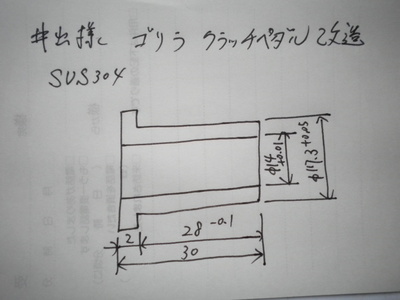 井出様 ゴリラ クラッチペダル改造
SUS304
φ14 +0.01
φ17.3 +0.05
2
28 -0.1
30